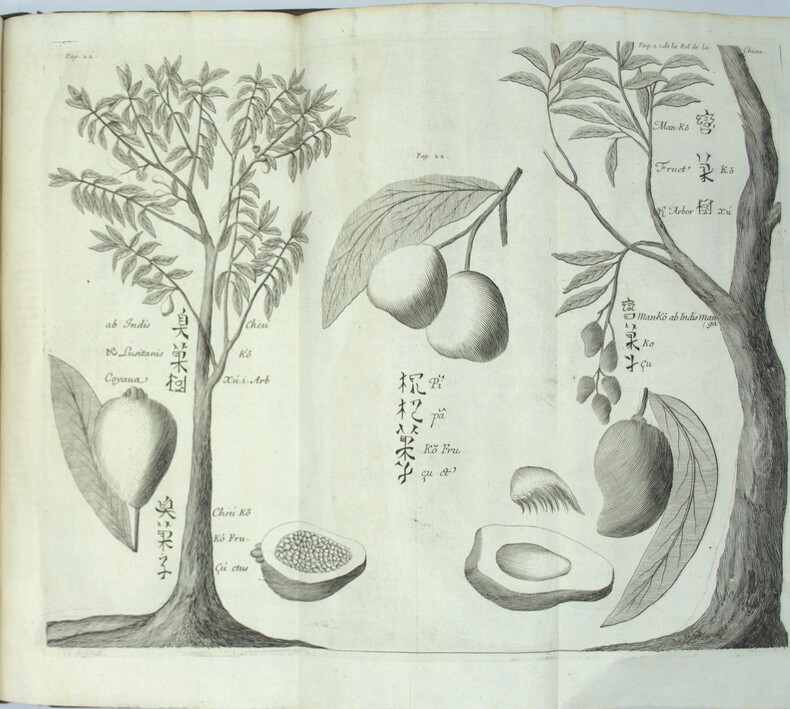 Pag. 22.
ab Indis 臭 Cheu
& Lusitanis 菓 Kŏ
Coyaua 樹 Xú.i. Arb
臭 Cheú Kŏ
菓 Kŏ Fru-
子 Çú ctus
Pag. 22.
枇 Pî
杷 pâ
菓 Kŏ Fru
子 çu ct⁹
Pag. 22 de la Rel de la Chine.
Man-Kŏ
Fruct⁹ 菓 Kŏ
& Arbor 樹 xú
ManKŏ ab Indis Man
ga
菓 Ko
子 çu